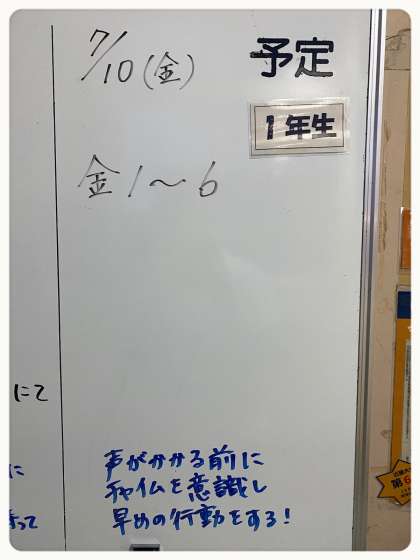 予定
1年生
7/10(金)
金1〜6
声がかかる前に
チャイムを意識し
早めの行動をする!
にて
に
って
第6